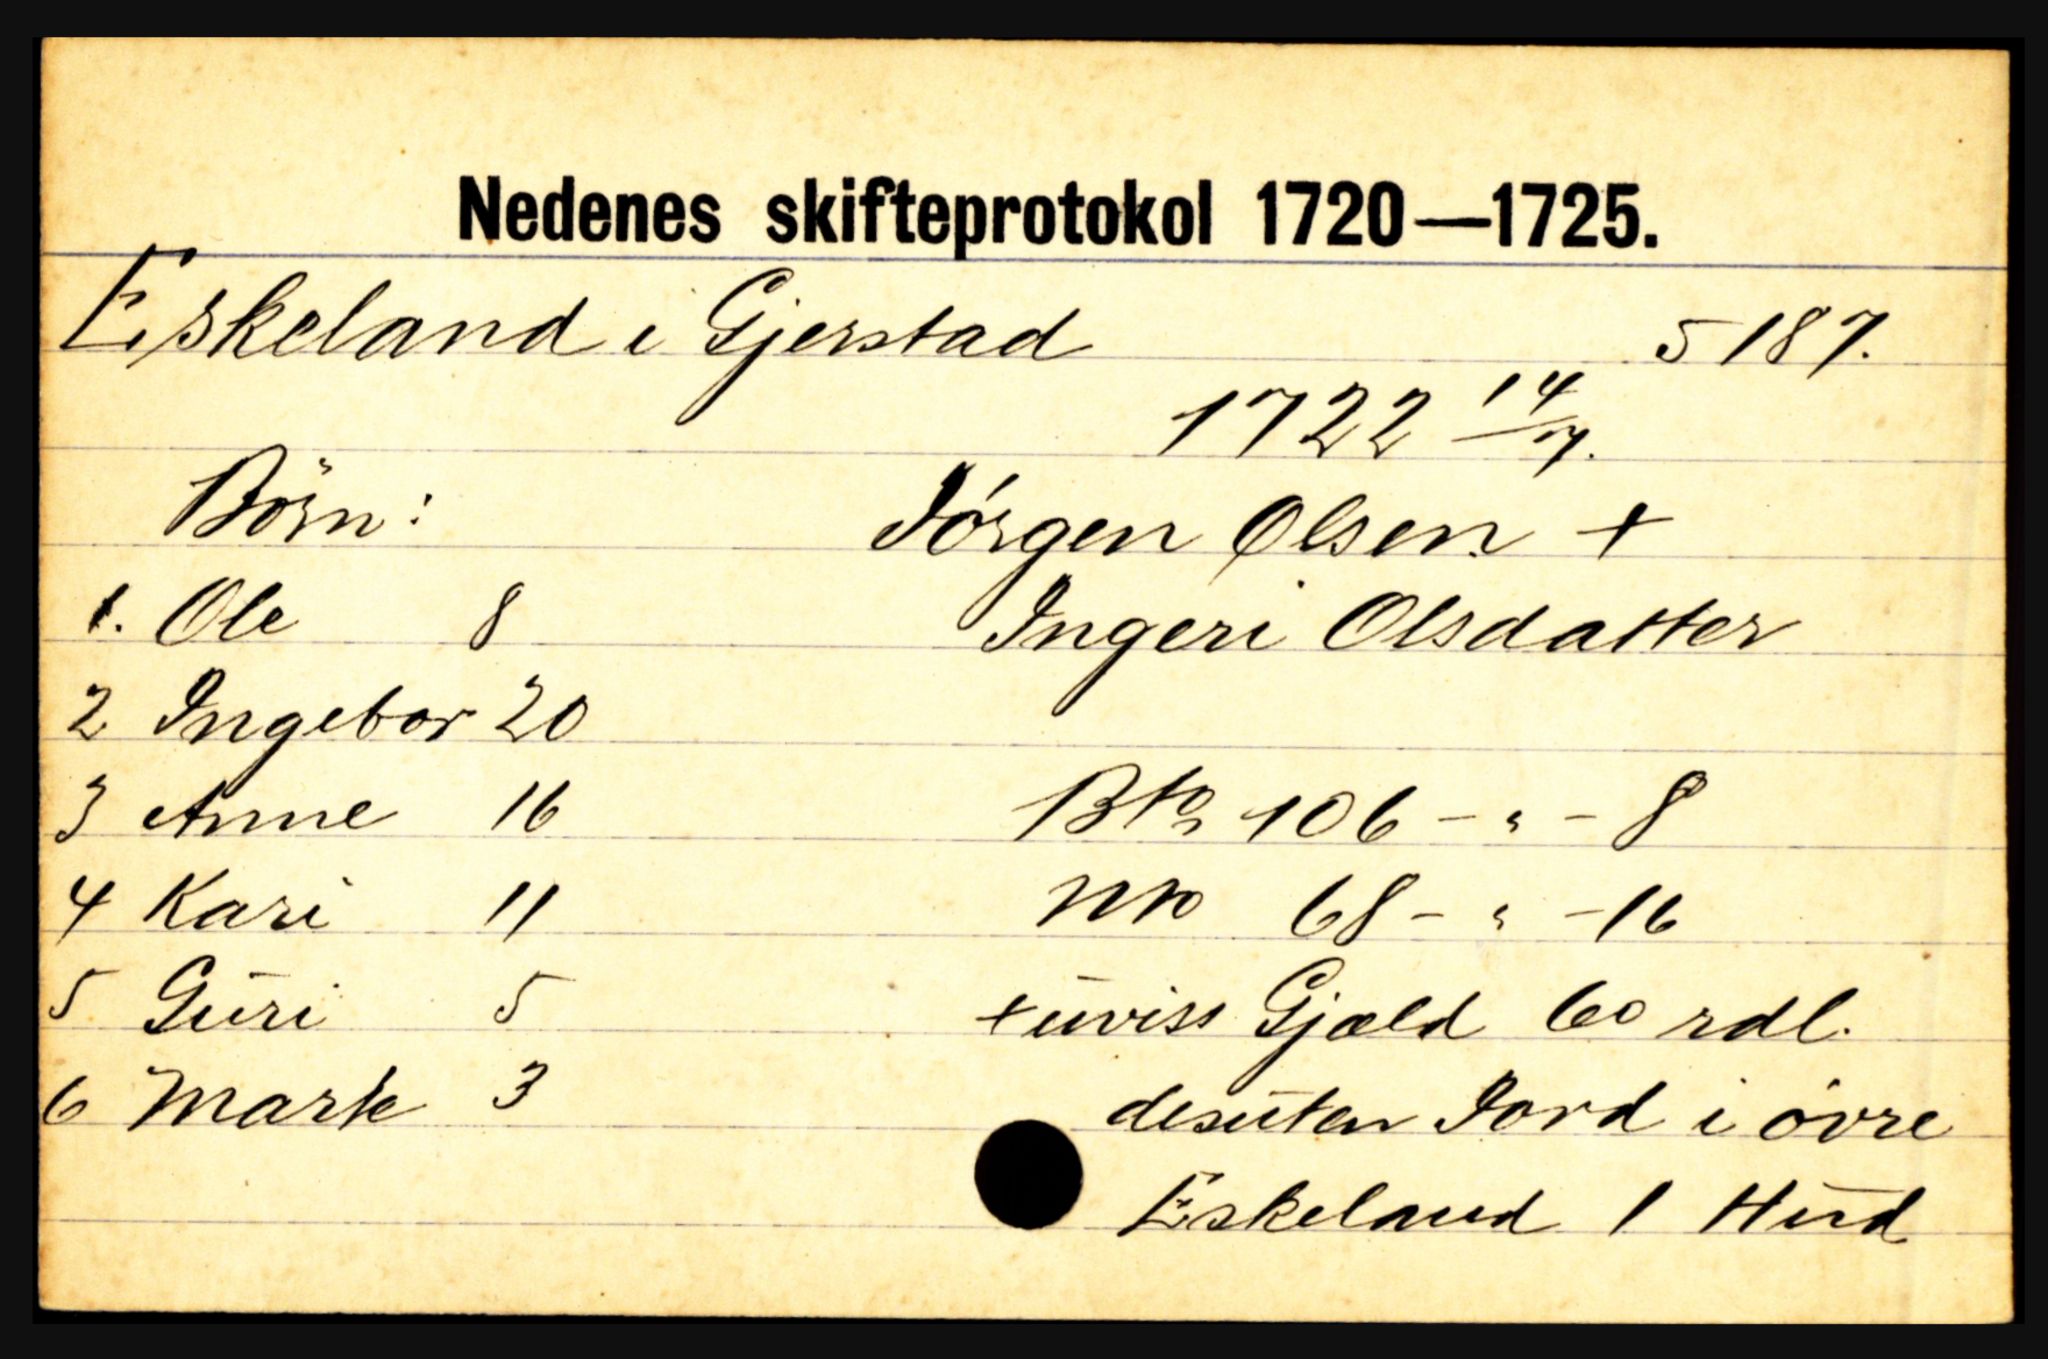 Nedenes skifteprotokol 1720—1725.
Eskeland i Gjerstad 5187.
1722 14/7.
Börn: Jórgen Olsen +
1. Ole 8 Ingeri Olsdatter
2 Ingebor 20
3 Anne 16 Bto 106 - " - 8
4 Kari 11 Nto 68 - " - 16
5 Guri 5 + uviss Gjæld 60 rdl.
6 Marte 3 desuten Jord i óvre
Eskeland 1 Hud